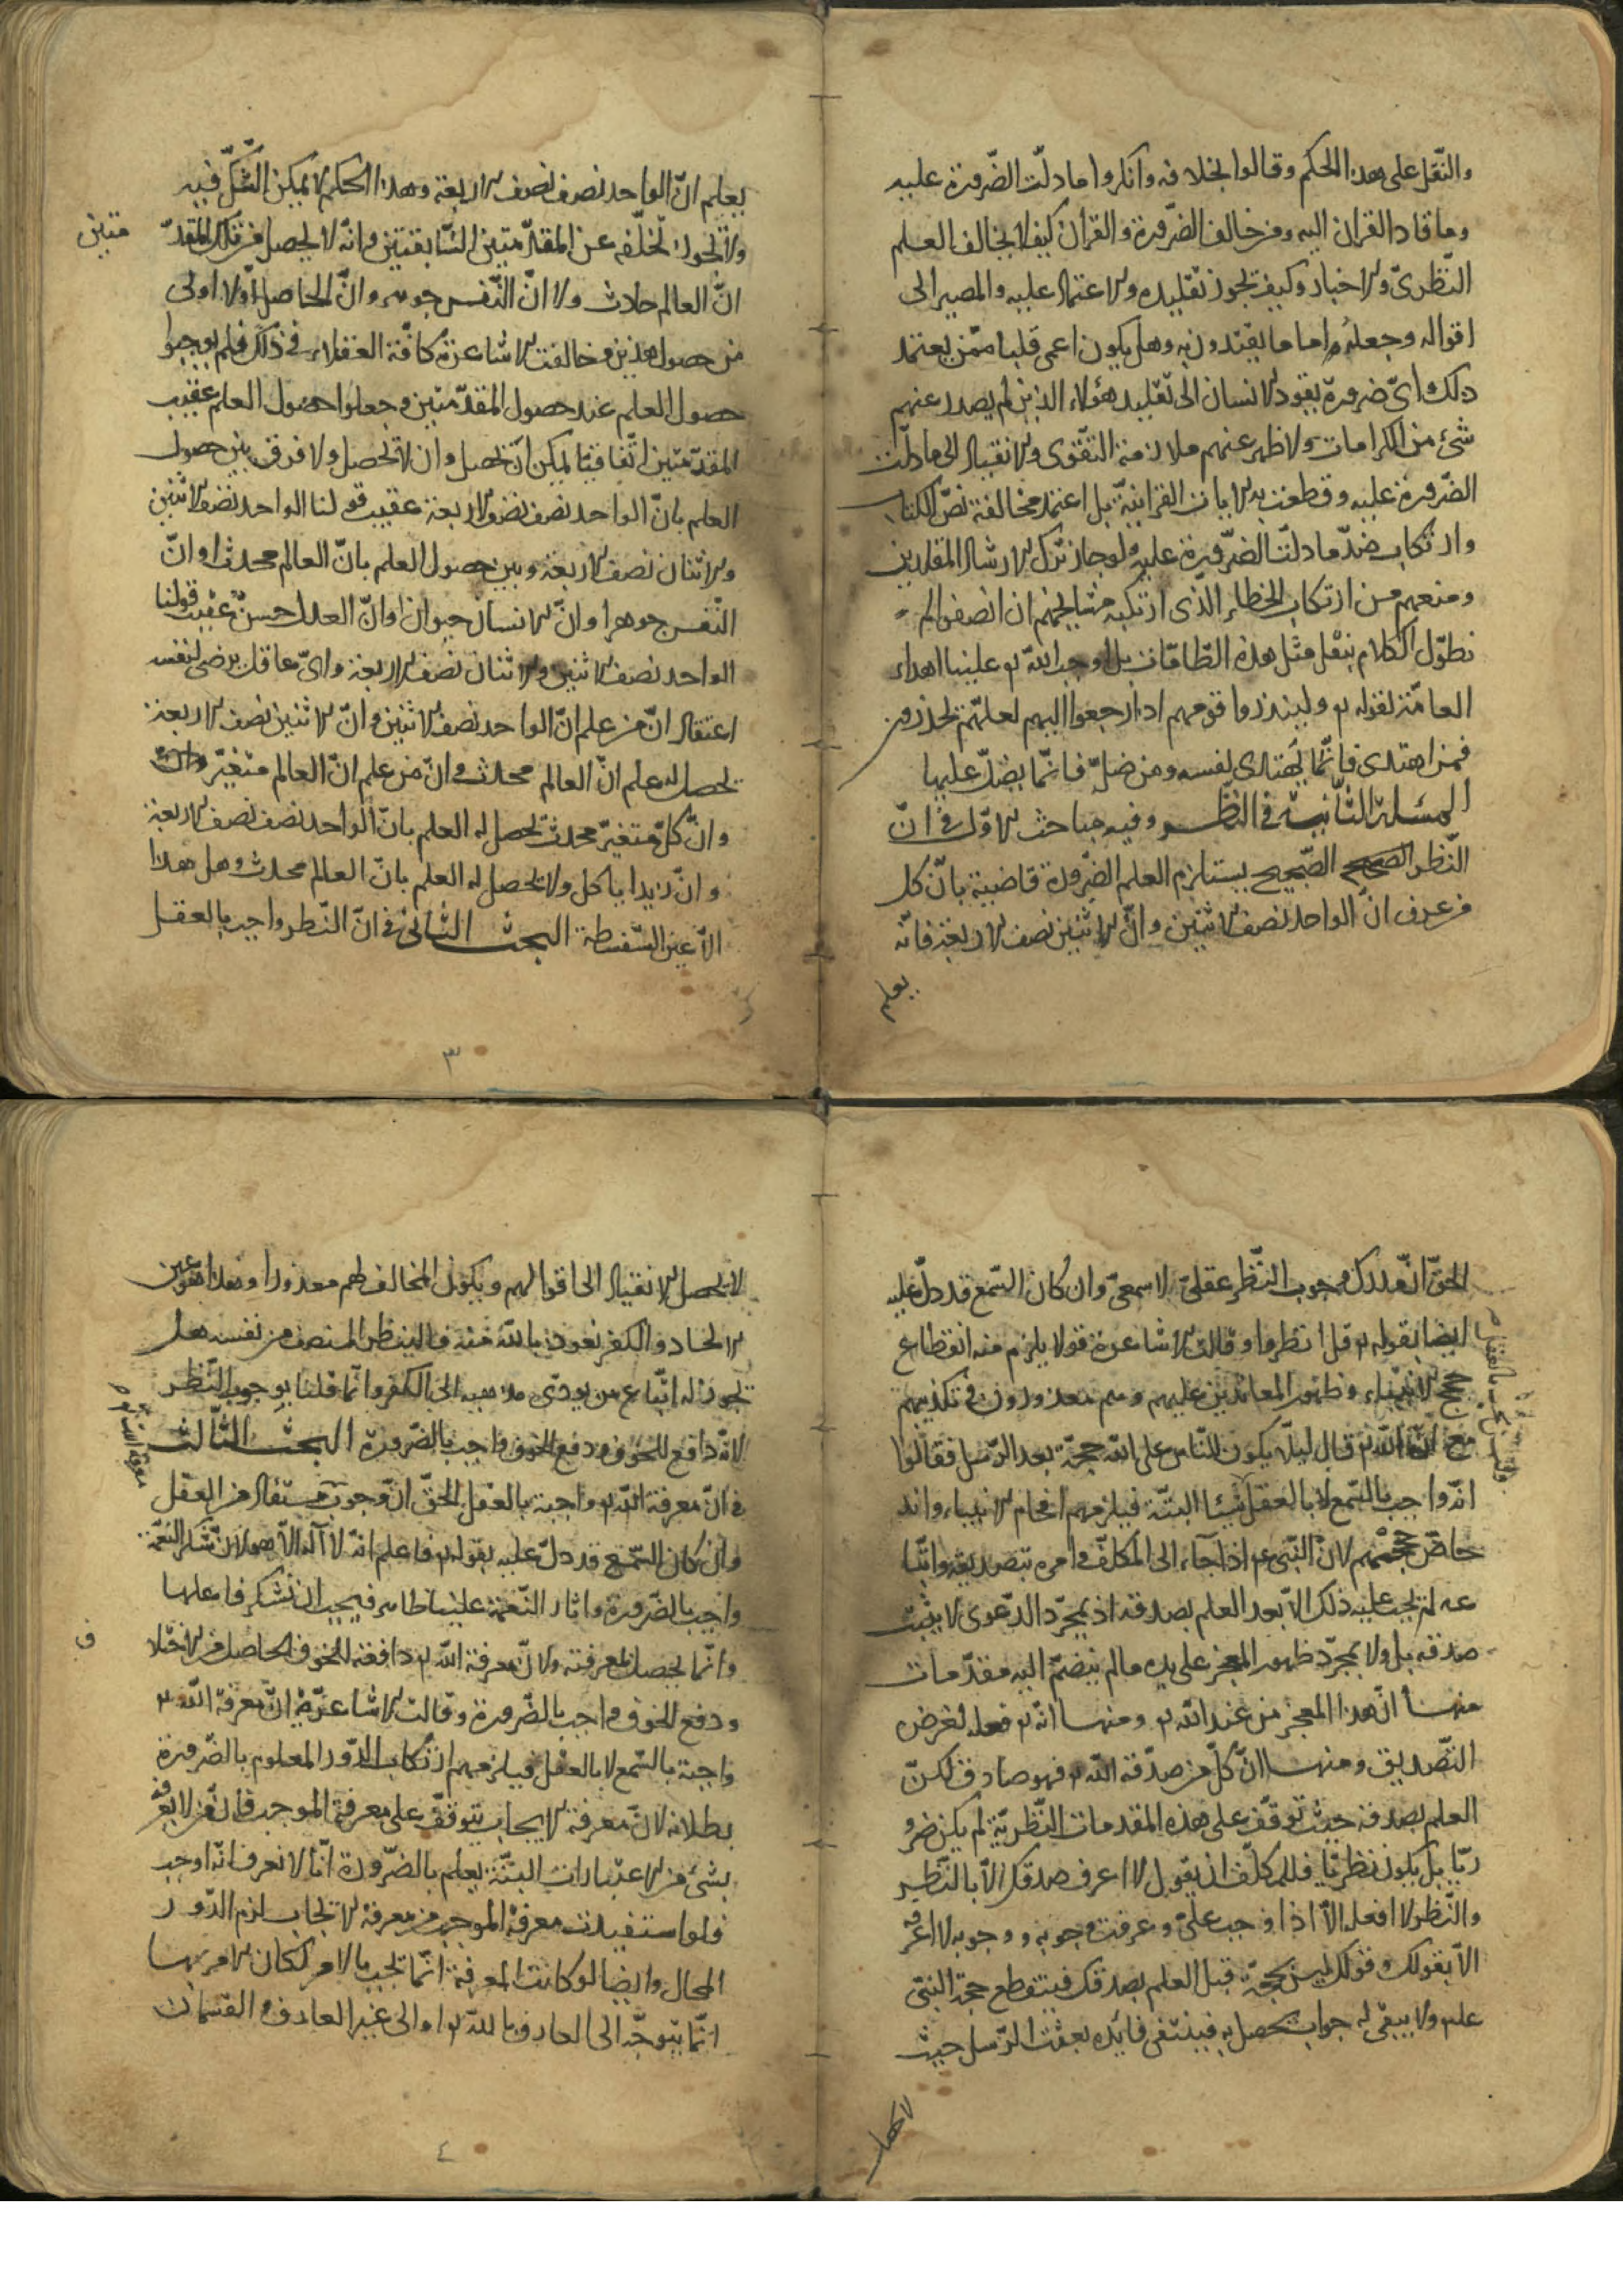 والنقل على هذا الحكم وقالوا بخلافه وانكروا ما دلّت الضّرورة عليه
وما قاد القران اليه ومن خالف الضّرورة والقرآن كيف لا يخالف العلم
النّظرىّ والاخبار وكيف يجوز تقليده والاعتماد عليه والمصير الى
اقواله وجعله اماما يقتدون به وهل يكون اعمى قلبا ممّن يعتمد
ذلك واىّ ضرورة يقود الانسان الى تقليد هؤلاء الذين لم يصدر عنهم
شئ من الكرامات ولا ظهر عنهم ملازمة التّقوى والانقياد الى ما دلّت
الضّرورة عليه وقطعت به الايات القرانيّة بل اعتمد مخالفة نصّ الكتاب
وارتكاب ضدّ ما دلّت الضّرورة عليه ولو جاز ترك ارشاد المقلدين
ومنعهم من ارتكاب الخطاء الذى ارتكبه مشايخهم ان انصفوا لم
نطوّل الكلام بنقل مثل هذه الطّامّات بل اوجب الله تع علينا اهداء
العامّة لقوله تع ولينذروا قومهم اذا رجعوا اليهم لعلّهم يحذرون
فمن اهتدى فانّما يهتدى لنفسه ومن ضلّ فانّما يضلّ عليها
المسئلة الثّانية فى النّظر وفيه مباحث الاوّل فى انّ
النّظر الصّحيح يستلزم العلم الضّرورة قاضية بانّ كل
من عرف انّ الواحد نصف الاثنين وانّ الاثنين نصف الاربعة فانّه
يعلم
يعلم انّ الواحد نصف نصف الاربعة وهذا الحكم لا يمكن الشّكّ فيه
ولا يجوز تخلّفه عن المقدّمتين السّابقتين وانّه لا يحصل من تلك المقدّ
متين
انّ العالم حادث ولا انّ النّفس جوهر وانّ الحاصل اوّلا اولى
من حصول هذين وخالفت الاشاعرة كافّة العقلاء فى ذلك فلم يوجبوا
حصول العلم عند حصول المقدّمتين وجعلوا حصول العلم عقيب
المقدّمتين اتّفاقيّا يمكن ان يحصل وان لا يحصل ولا فرق بين حصول
العلم بانّ الواحد نصف نصف الاربعة عقيب قولنا الواحد نصف الاثنين
والاثنان نصف الاربعة وبين حصول العلم بانّ العالم محدث او انّ
النّفس جوهر او انّ الانسان حيوان او انّ العدل حسنٌ عقيب قولنا
الواحد نصف الاثنين والاثنان نصف الاربعة واىّ عاقل يرضى لنفسه
اعتقاد انّ من علم انّ الواحد نصف الاثنين وانّ الاثنين نصف الاربعة
يحصل له علم انّ العالم محدث وانّ من علم انّ العالم متغيّر
وانّ كلّ متغيّر محدث يحصل له العلم بانّ الواحد نصف نصف الاربعة
وانّ زيدا ياكل ولا يحصل له العلم بانّ العالم محدث وهل هذا
الّا عين السّفسطة البحث الثّانى فى انّ النّظر واجب بالعقل
٣
الحقّ انّ مدرك وجوب النّظر عقلىّ لا سمعىّ وان كان السّمع قد دلّ عليه
ايضا بقوله تع قل انظروا وقالت الاشاعرة قولا يلزم منه انقطاع
حجج الانبياء وظهور المعاندين عليهم وهم معذورون فى تكذيبهم
مع انّ الله تع قال ليلّا يكون للنّاس على الله حجّة بعد الرّسل فقالوا
انّه واجب بالسّمع لا بالعقل شيئا البتّة فيلزمهم افحام الانبياء واند
حاضّ حجّتهم لانّ النّبى ع م اذا جآء الى المكلّف وامره بتصديقه واتّبا
عه لم يجب عليه ذلك الّا بعد العلم بصدقه اذ بمجرّد الدّعوى لا يثبت
صدقه بل ولا بمجرّد ظهور المعجز على يده ما لم ينضمّ اليه مقدّمات
منها انّ هذا المعجز من عند الله تع ومنها انّه تع فعله لغرض
التّصديق ومنها انّ كلّ من صدّقه الله تع فهو صادق لكنّ
العلم بصدقه حيث توقّف على هذه المقدمات النّظريّة لم يكن ضرو
ريّا بل يكون نظريّا فللمكلّف ان يقول لا اعرف صدقك الّا بالنّظر
والنّظر لا افعله الّا اذا وجب علىّ وعرفت وجوبه ووجوبه لا اعرفه
الّا بقولك وقولك ليس بحجّة قبل العلم بصدقك فينقطع حجة النبىّ
عليه ولا يبقى له جواب يحصل به فينتفى فائده بعثت الرّسل حيث
لا يحصل
لا يحصل الانقياد الى اقوالهم ويكون المخالف لهم معذورا وهذا هو عين
الالحاد والكفر نعوذ بالله منه فالينظر المنصف من نفسه هل
يجوز له اتّباع من يودّى مذهبه الى الكفر وانّما قلنا بوجوب النّظر
لانّه دافع للخوف ودفع الخوف واجب بالضّرورة البحث الثّالث
فى انّ معرفة الله تع واجبة بالعقل الحقّ انّ وجوب مستفاد من العقل
وان كان السّمع قد دلّ عليه بقوله تع فاعلم انّه لا آله الّا هو لانّ شكر النّعمة
واجب بالضّرورة واثار النّعمة علينا ظاهرة فيجب ان نشكر فاعلها
وانّما يحصل بمعرفته ولانّ معرفة الله تع دافعة للخوف الحاصل من الاختلا
ف
ودفع الخوف واجب بالضّرورة وقالت الاشاعرة انّ معرفة الله تع
واجبة بالسّمع لا بالعقل فيلزمهم ارتكاب الدّور المعلوم بالضّرورة
بطلانه لانّ معرفة الايجاب يتوقّف على معرفة الموجب فانّ من لا يعرفه
بشئ من الاعتبارات البتّة يعلم بالضّرورة انّا لا نعرف انّه اوجب
فلو استفيدت معرفة الموجب من معرفة الايجاب لزم الدّور
المحال وايضا لو كانت المعرفة انّما تجب بالامر لكان الامر بها
انّما يتوجّه الى العارف بالله تع او الى غير العارف والقسمان
٤